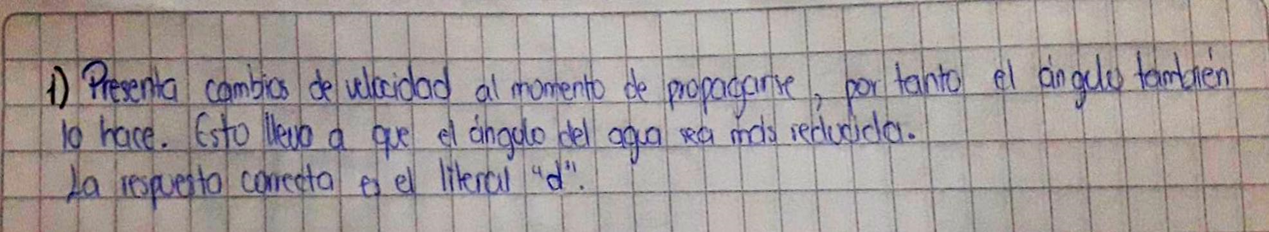 1) Presenta cambios de velocidad al momento de propagarse, por tanto el ángulo también
lo hace. Esto lleva a que el ángulo del agua sea más reducida.
La respuesta correcta es el literal "d".